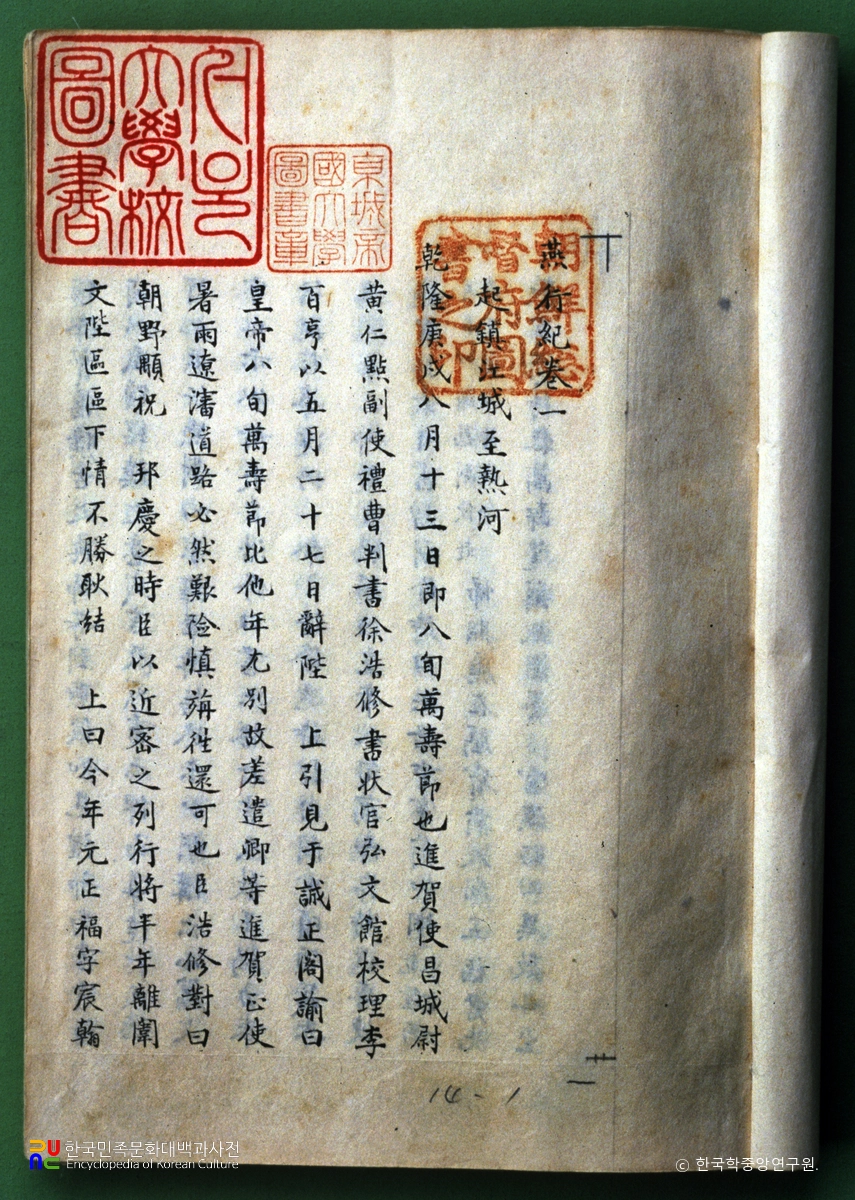 燕行紀卷一
起鎮江城至熱河
乾隆庚戌八月十三日即八旬萬壽節也進賀使昌城尉
黄仁點副使禮曹判書徐浩修書狀官弘文館校理李
百亨以五月二十七日辭陛 上引見于誠正閣諭曰
皇帝八旬萬壽節比他年尤別故差遣卿等進賀正使
暑雨遼瀋道路必然艱險慎旃徃還可也臣浩修對曰
朝野顒祝 邦慶之時臣以近密之列行將半年離闈
文陛區區下情不勝耿結 上曰今年元正福字宸翰
朝鮮總
督府圖
書之印
京城帝
國大學
圖書章
大學校
圖書
14-1
한국민족문화대백과사전
Encyclopedia of Korean Culture
© 한국학중앙연구원.